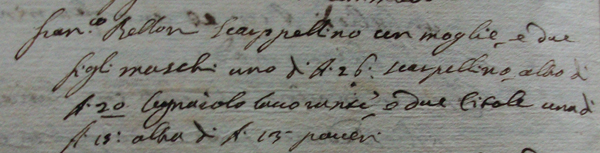 Fran.co Bellon scarppellino con moglie, e due
figli maschi uno di A: 26: scarpellino, altro di
A: 20 legnaiolo lavoranti, e due citole una di
A: 18: altra di A: 13 poveri